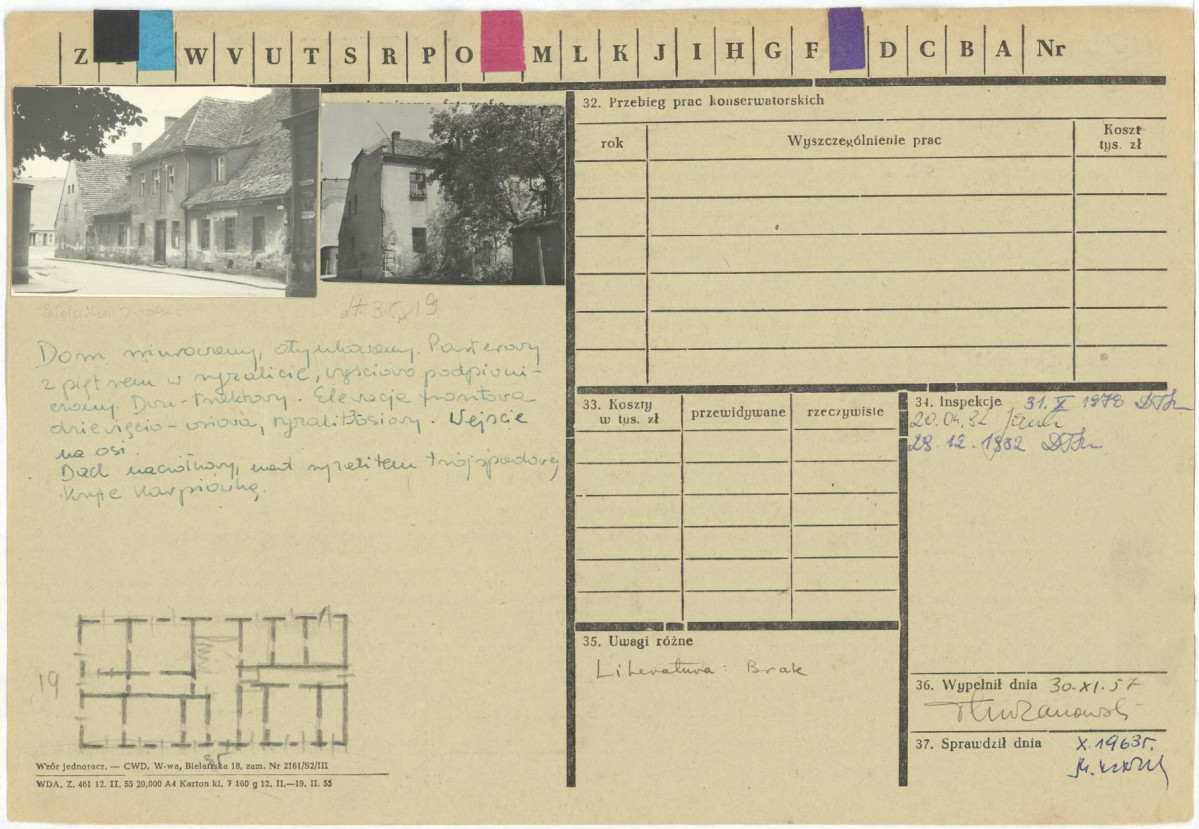 Z W V U T S R P O M L K J I H G F D C B A Nr
19
Dom murowany, otynkowany. Parterowy
z piętrem w ryzalicie, częściowo podpiwni-
czony. Dwu-traktowy. Elewacja frontowa
dziewięcio-osiowa, ryzalit 3osiowy. Wejście
na osi.
Dach naczółkowy, nad ryzalitem trójspadowy
Kryte Karpiówką.
19
Wzór jednoracz. — CWD, W-wa, Bielańska 18, zam. Nr 2161/S2/III
WDA. Z. 461 12. II. 55 20,000 A4 Karton kl. 7 160 g 12. II.—19. II. 55
32. Przebieg prac konserwatorskich
rok
Wyszczególnienie prac
Koszt
tys. zł
33. Koszty
w tys. zł
przewidywane
rzeczywiste
34. Inspekcje 31. X 1978
20.04.82
28. 12. 1982
35. Uwagi różne
Literatura: Brak
36. Wypełnił dnia 30.XI.57
37. Sprawdził dnia X.1963r.